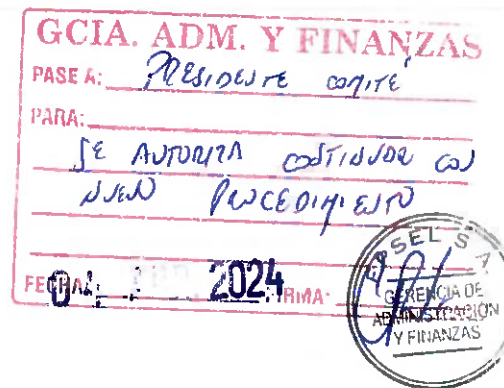 GCIA. ADM. Y FINANZAS
PASE A: PRESIDENTE COMITÉ
PARA:
SE AUTORIZA CONTINUAR CON
NUEVO PROCEDIMIENTO
FECHA: 04 2024 FIRMA:
SEL S.A.
GERENCIA DE
ADMINISTRACIÓN
Y FINANZAS